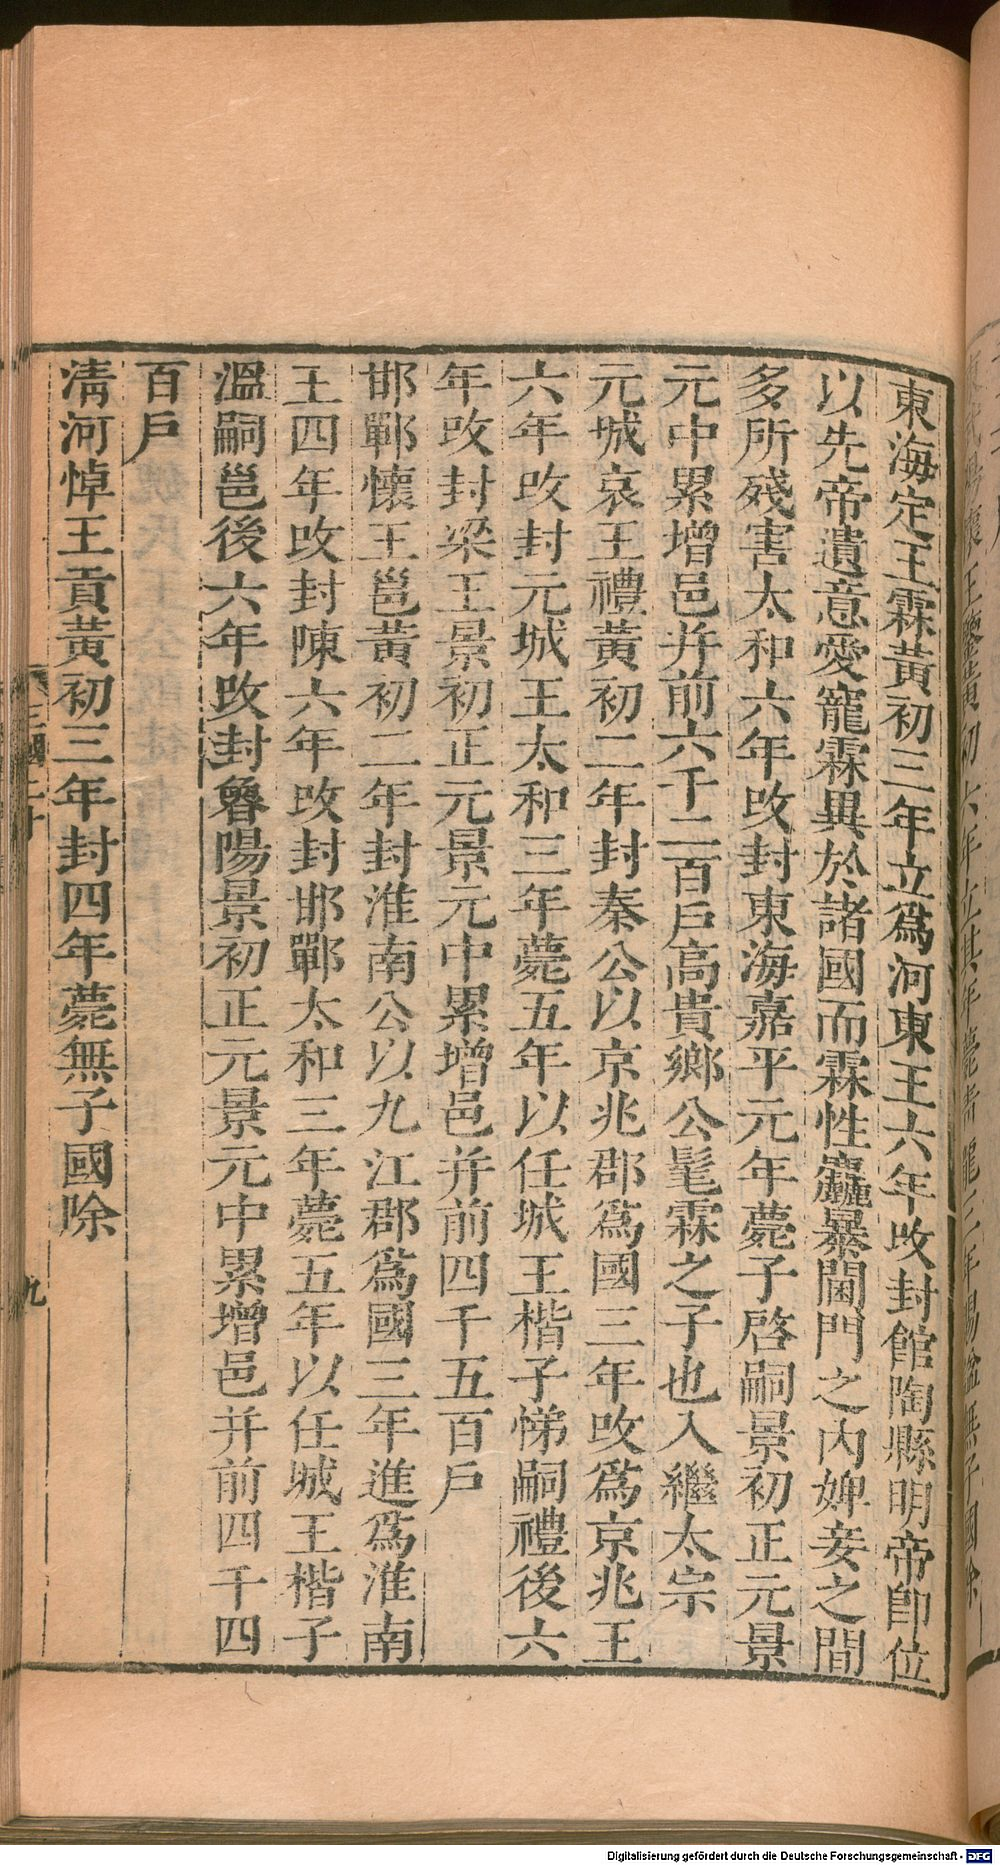 東海定王霖黃初三年立爲河東王六年改封館陶縣明帝卽位
以先帝遺意愛寵霖異於諸國而霖性麤暴閨門之內婢妾之間
多所殘害太和六年改封東海嘉平元年薨子啓嗣景初正元景
元中累增邑并前六千二百戶高貴鄉公髦霖之子也入繼太宗
元城哀王禮黃初二年封秦公以京兆郡爲國三年改爲京兆王
六年改封元城王太和三年薨五年以任城王楷子悌嗣禮後六
年改封梁王景初正元景元中累增邑并前四千五百戶
邯鄲懷王邕黃初二年封淮南公以九江郡爲國三年進爲淮南
王四年改封陳六年改封邯鄲太和三年薨五年以任城王楷子
溫嗣邕後六年改封魯陽景初正元景元中累增邑并前四千四
百戶
淸河悼王貢黃初三年封四年薨無子國除
九
Digitalisierung gefördert durch die Deutsche Forschungsgemeinschaft - DFG